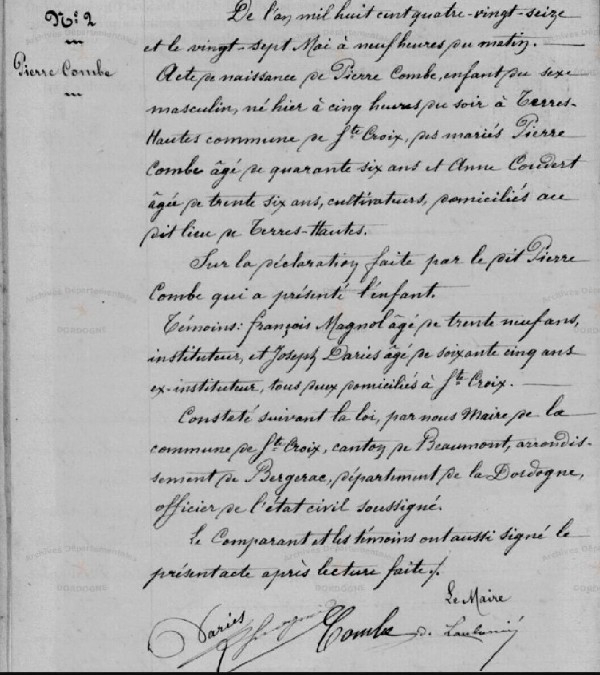 N°: 2
Pierre Combe
De l'an mil huit cent quatre-vingt-seize
et le vingt-sept Mai à neuf heures du matin.
Acte de naissance de Pierre Combe, enfant du sexe
masculin, né hier à cinq heures du soir à Terres-
Hautes commune de Ste Croix, des mariés Pierre
Combe âgé de quarante six ans et Anne Coudert
âgée de trente six ans, cultivateurs, domiciliés au
dit lieu de Terres-Hautes.
Sur la déclaration faite par le dit Pierre
Combe qui a présenté l'enfant.
Témoins: françois Magnol âgé de trente neuf ans,
instituteur, et Joseph Dariès âgé de soixante cinq ans
ex-instituteur, tous deux domiciliés à Ste Croix.
Constaté suivant la loi, par nous Maire de la
commune de Ste Croix, canton de Beaumont, arrondis-
sement de Bergerac, département de la Dordogne,
officier de l'état civil soussigné.
Le Comparant et les témoins ont aussi signé le
présent acte après lecture faite.
Le Maire
Dariès Combe de